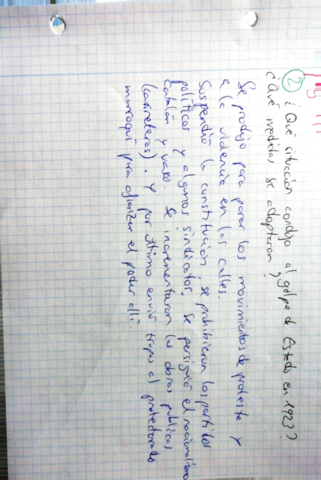 Pag 111
② ¿Qué situacion condujo al golpe de Estado en 1923?
¿Qué medidas se adoptaron?
Se produjo para parar los movimientos de protesta y
a la violencia en las calles.
Suspendió la constitución, se prohibieron los partidos
políticos y algunos sindicatos. Se persiguió el nacionalismo
Catalán y vasco. Se incrementaron las obras públicas
(carreteras). Y por último envió tropas al protectorado
marroquí para afianzar el poder allí.